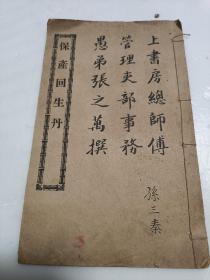 上書房總師傅
管理吏部事務
愚弟張之萬撰
孫三秦
保產回生丹